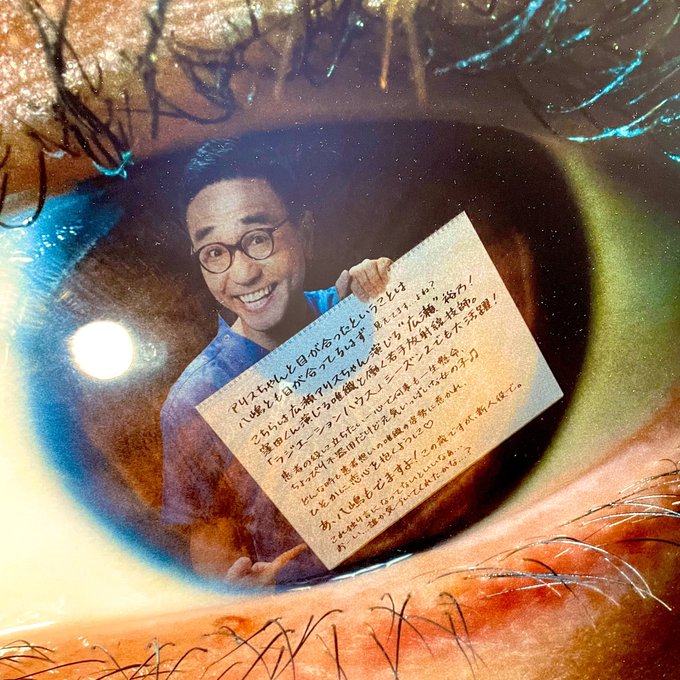 アリスちゃんと目が合ったということは
八嶋とも目が合ってるはず 見えてますよね?
こちらは広瀬アリスちゃん演じる“広瀬”裕乃!
窪田くん演じる唯織と働く若手放射線技師。
「ラジエーションハウス」シーズン2でも大活躍!
患者の役に立ちたい一心で何事も一生懸命。
ちょっぴり不器用だけど元気いっぱいな女の子♫
どんな時も患者想いの唯織の姿勢に惹かれ
ひそかに想いを抱くようって♡
あ、八嶋もでますよ!この歳ですが、新人役で。
これ独り言になってないといいなぁ
おーい、誰か気づいてくれたかな…?